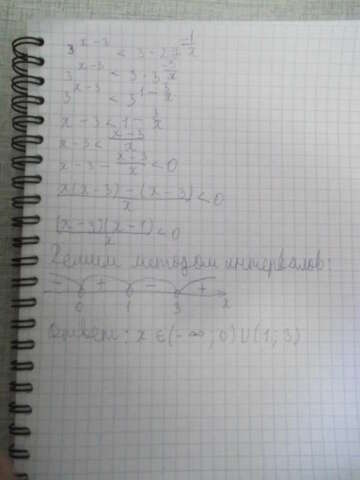 3^(x-3) < 3·27^(-1/x)
3^(x-3) < 3·3^(-3/x)
3^(x-3) < 3^(1-3/x)
x-3 < 1-3/x
x-3 < (x-3)/x
x-3 - (x-3)/x < 0
(x(x-3)-(x-3))/x < 0
((x-3)(x-1))/x < 0
Решим методом интервалов:
- + - +
0 1 3 x
Ответ: x ∈ (-∞; 0) U (1; 3)